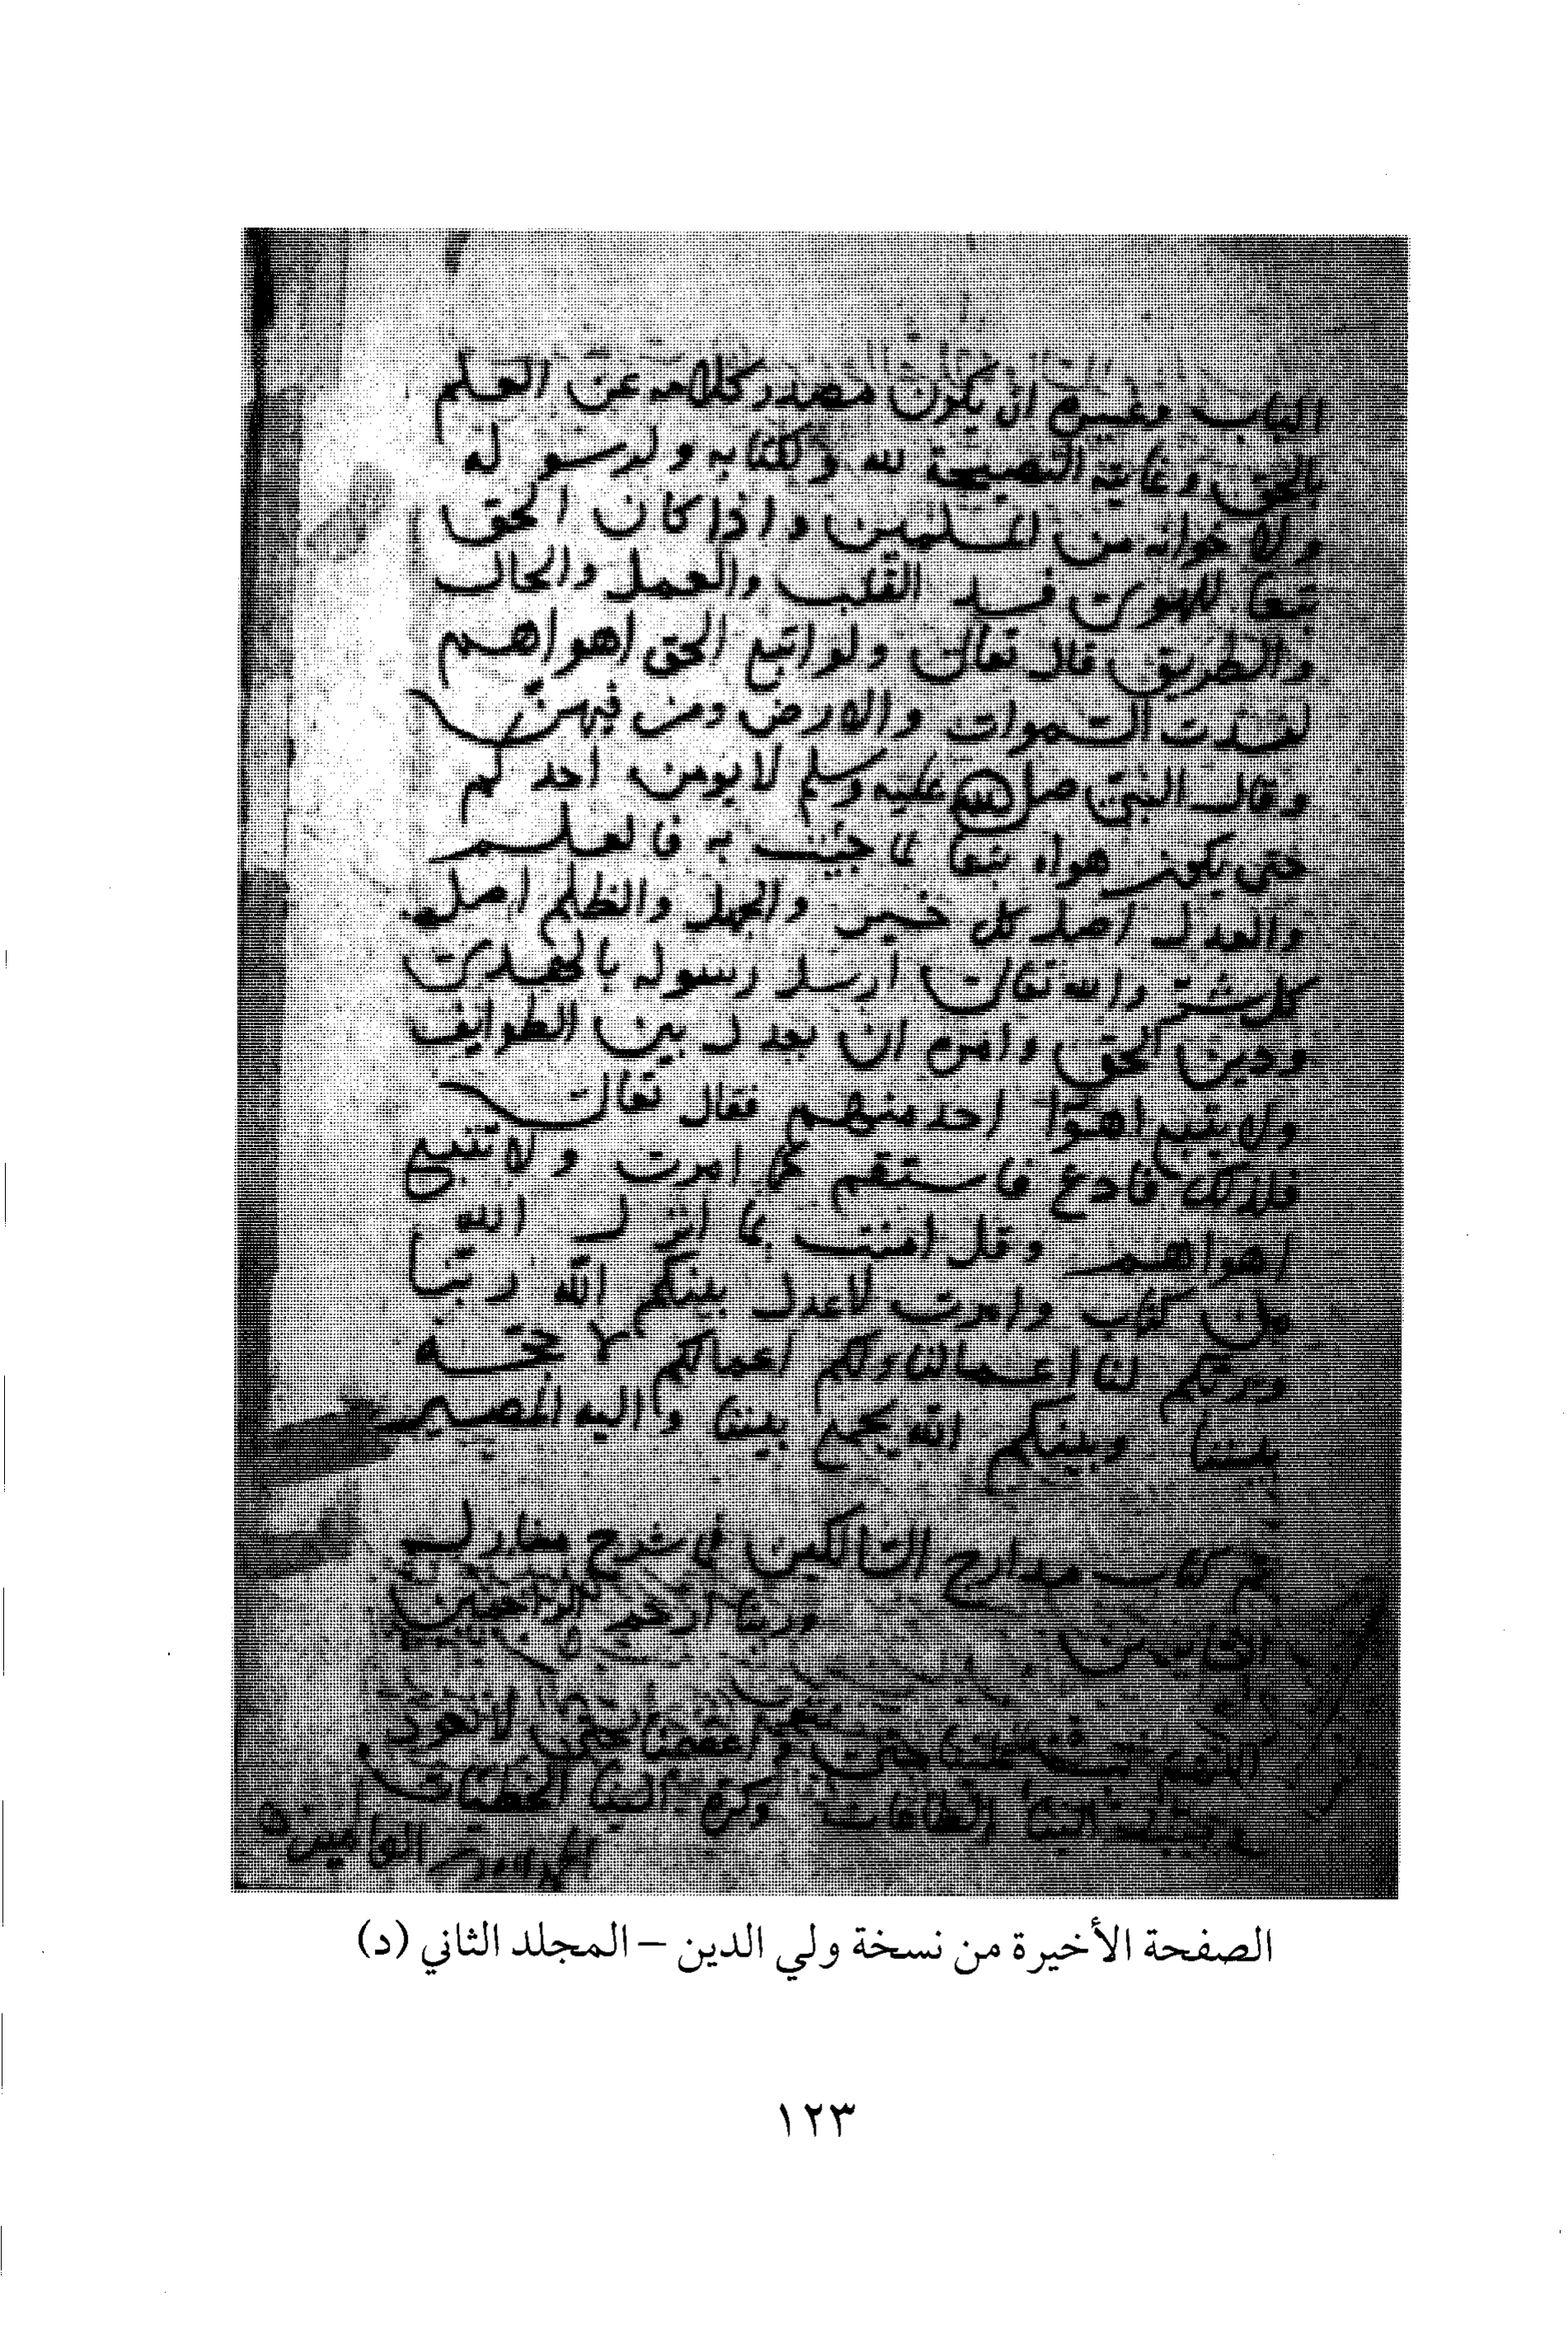 الباب وغيره ان يكون مصدر كلامه عن العلم
بالحق وغايته النصيحة لله ولكتابه ولرسوله
ولاخوانه من المسلمين واذا كان الحق
تبعا للهوى فسد القلب والعمل والحال
والطريق قال تعالى ولو اتبع الحق اهواهم
لفسدت السموات والارض ومن فيهن
وقال النبي صلى الله عليه وسلم لا يومن احدكم
حتى يكون هواه تبعا لما جيت به فالعلم
والعدل اصل كل خير والجهل والظلم اصل
كل شر والله تعالى ارسل رسوله بالهدى
ودين الحق وامره ان يعدل بين الطوايف
ولا يتبع اهوا احد منهم فقال تعالى
فلذلك فادع فاستقم كما امرت ولا تتبع
اهواهم وقل امنت بما انزل الله
من كتاب وامرت لاعدل بينكم الله ربنا
وربكم لنا اعمالنا ولكم اعمالكم لا حجة
بيننا وبينكم الله يجمع بيننا واليه المصير
تم كتاب مدارج السالكين في شرح منازل
السايرين وربنا ارحم الراحمين
اللهم حتى واعصمنا حتى لا نعود
وحبب الينا الطاعات وكره الينا
الحمد لله رب العالمين
الصفحة الأخيرة من نسخة ولي الدين – المجلد الثاني (د)
١٢٣